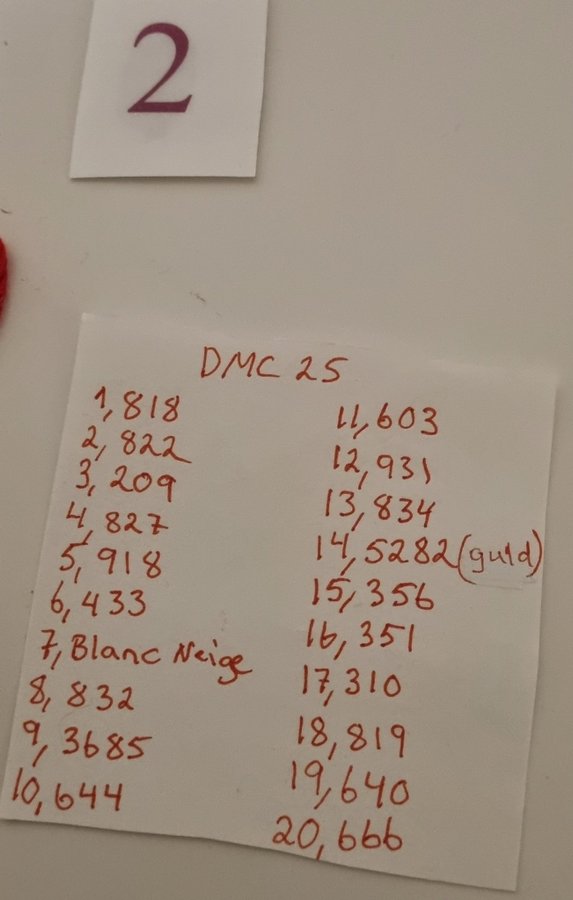 2
DMC 25
1, 818
2, 822
3, 209
4, 827
5, 918
6, 433
7, Blanc Neige
8, 832
9, 3685
10, 644
11, 603
12, 931
13, 834
14, 5282 (guld)
15, 356
16, 351
17, 310
18, 819
19, 640
20, 666